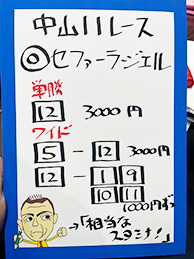 中山11レース
◎セファーラジエル
単勝
12 3000円
ワイド
5 - 12 3000円
12 - 1 9
10 11
1000円ずつ
→「相当な
スタミナ!」